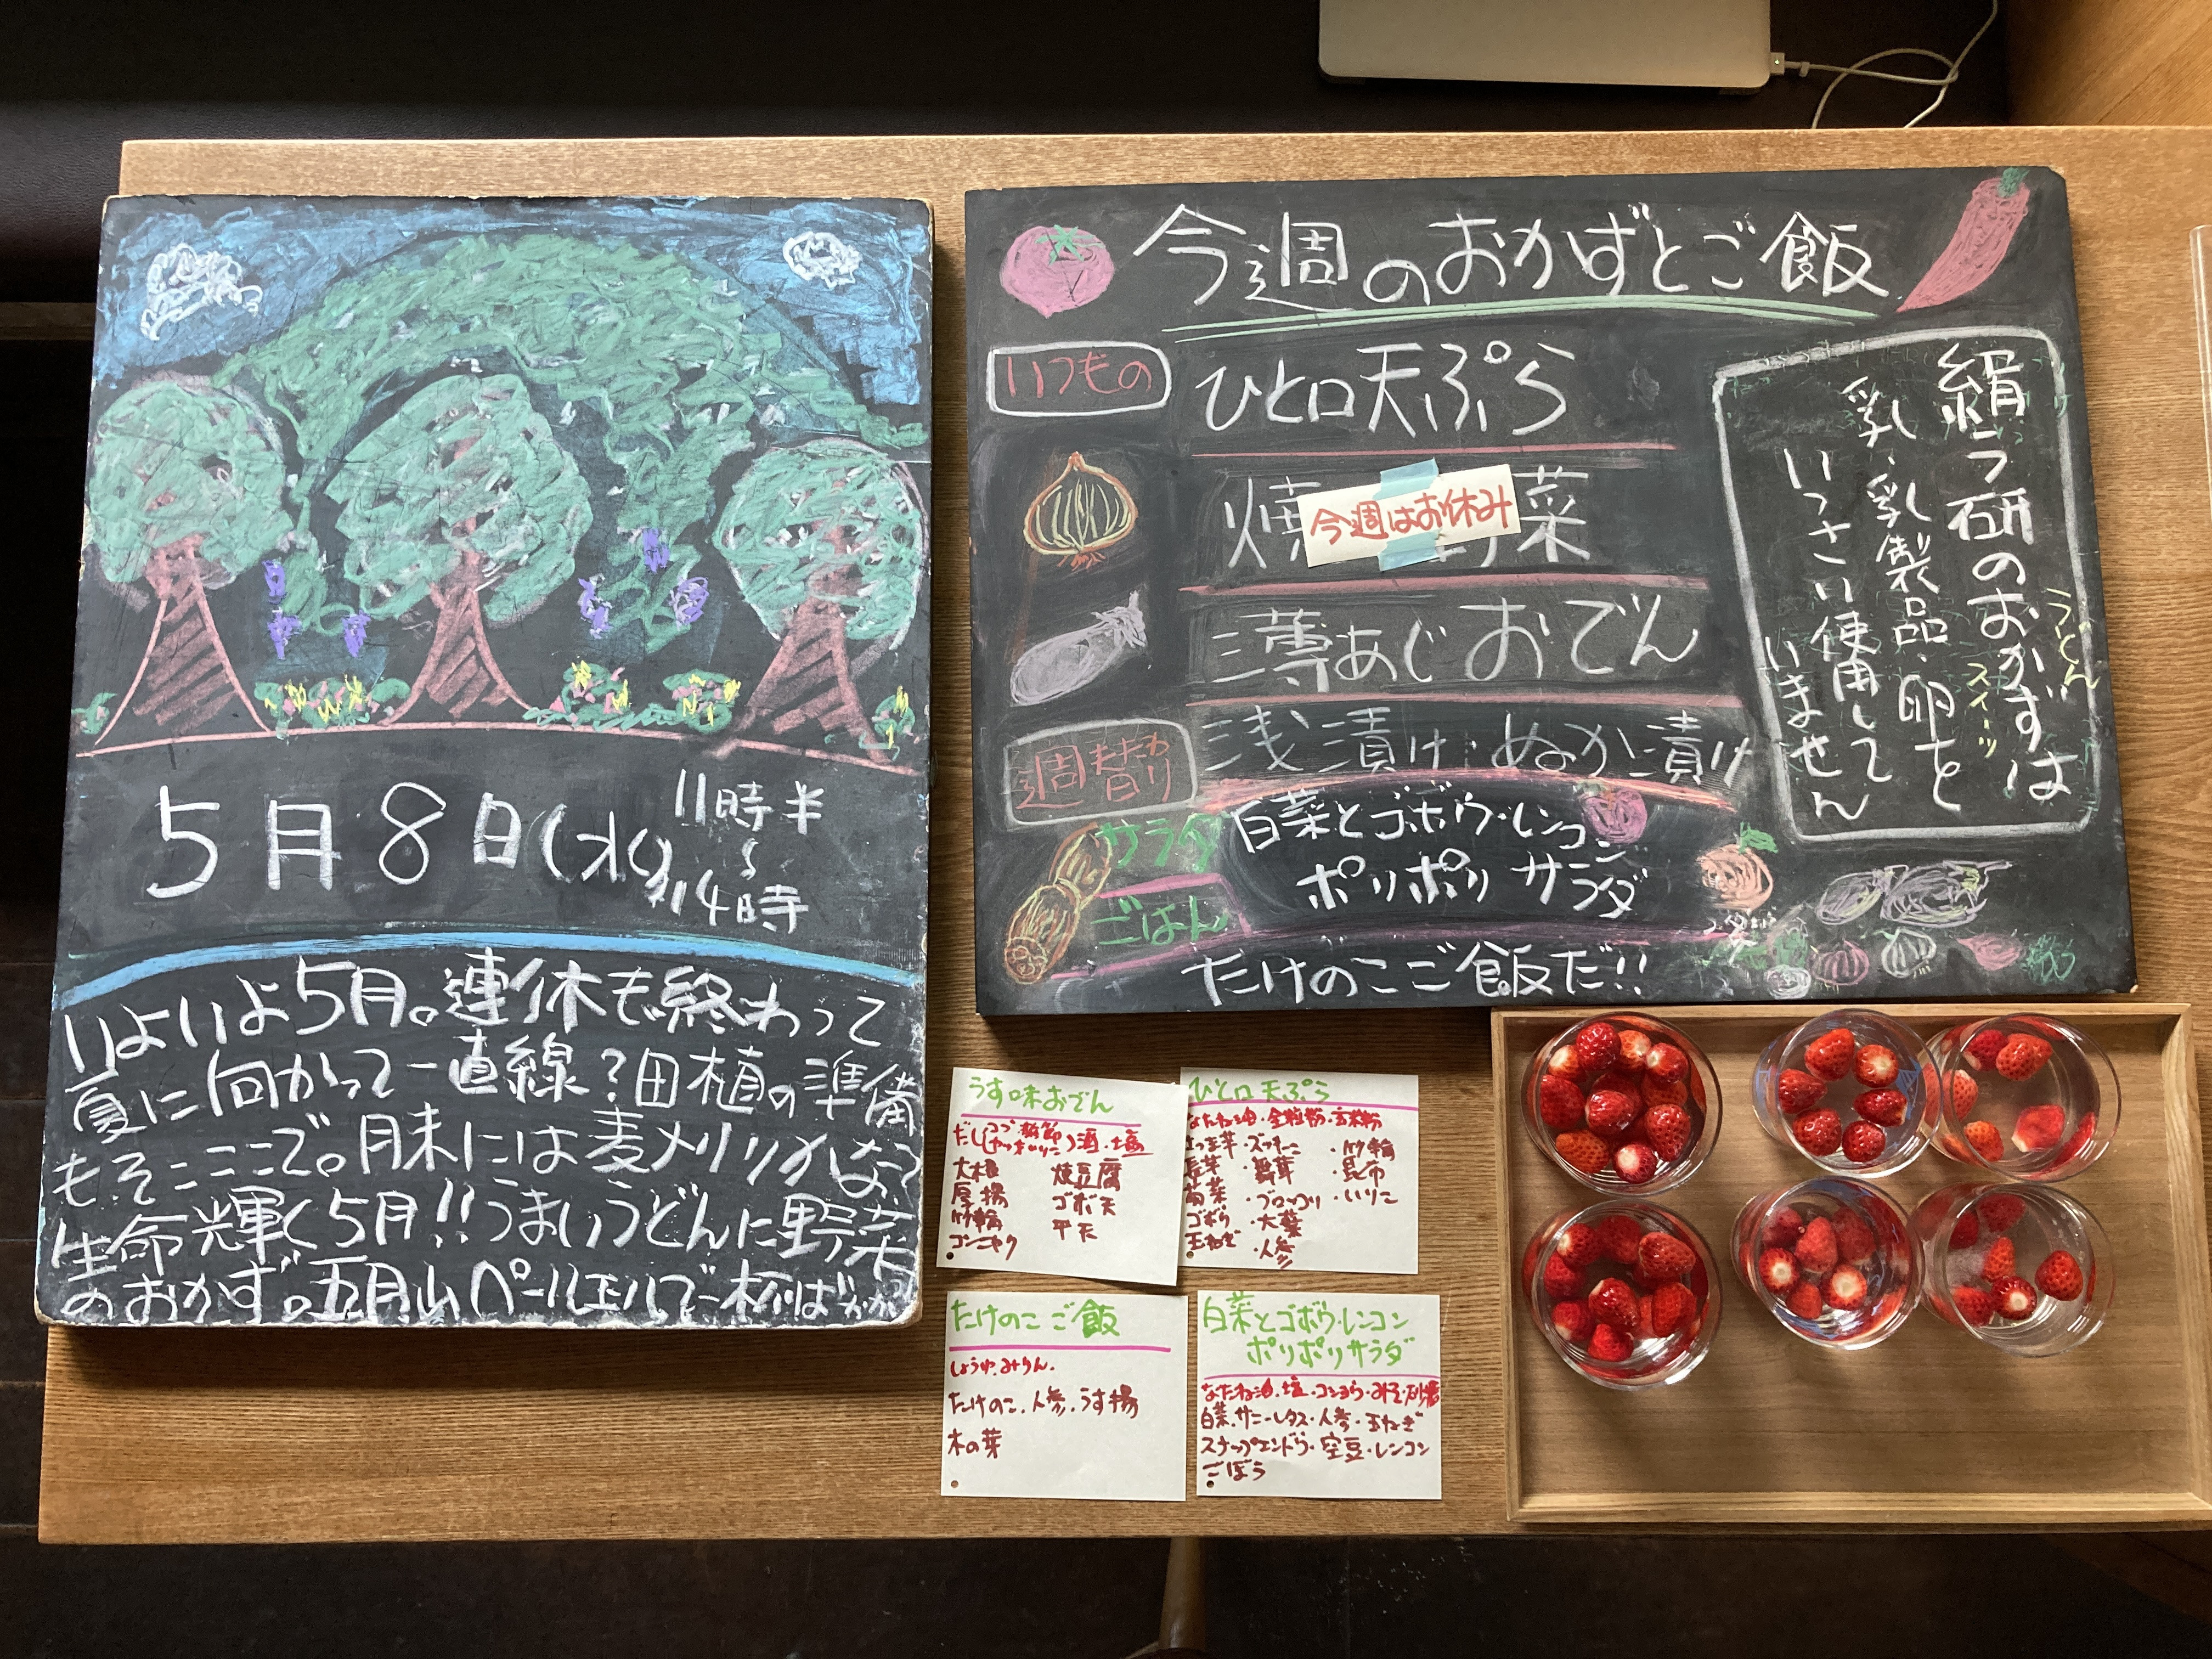 5月8日(水)
11時半
〜
14時
いよいよ5月。連休も終わって
夏に向かって一直線?田植の準備
もそこここで。月末には麦メリリカ
生命輝く5月!!うまいうどんに野菜
のおかず。五月山ペールエルで一杯
今週のおかずとご飯
いつもの
ひと口天ぷら
焼 菜
今週はお休み
薄あじおでん
浅漬け・ぬか漬け
週替わり
サラダ
白菜とゴボウ・レンコン
ポリポリサラダ
ごはん
たけのこご飯だ!!
絹う研のおかずは
うどん
スイーツ
乳・乳製品・卵を
いっさい使用して
いません
うす味おでん
だし
酒・塩
大根
厚揚
竹輪
コンニャク
焼豆腐
ゴボ天
平天
ひと口天ぷら
なたね油・全粒粉・玄米粉
さつま芋・ズッキーニ
・竹輪
長芋
・舞茸
・昆布
・ブロッコリ
・いりこ
ゴボウ
・大葉
玉ねぎ
・人参
たけのこご飯
しょうゆ・みりん.
たけのこ、人参、うす揚
木の葉
白菜とゴボウ・レンコン
ポリポリサラダ
なたね油・塩・コショウ・みそ・砂糖
白菜・サニーレタス・人参・玉ねぎ
スナップエンドウ・空豆・レンコン
ごぼう